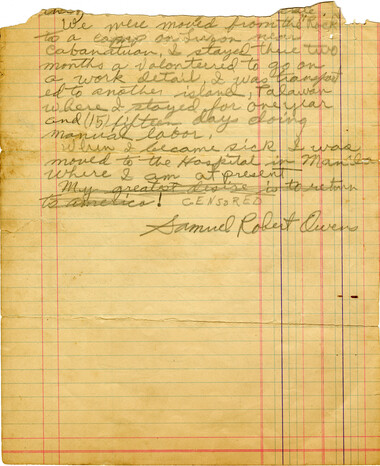 We were moved from the "Rock"
to a camp on Luzon near
Cabanatuan, I stayed there two
months & volonteered to go on
a work detail, I was transport
ed to another island, Palawan
where I stayed for one year
and (15) fifteen days doing
manual labor.
When I became sick I was
moved to the Hospital in Manila
where I am at present
My greatest desire is to return
to america! CENSORED
Samuel Robert Owens